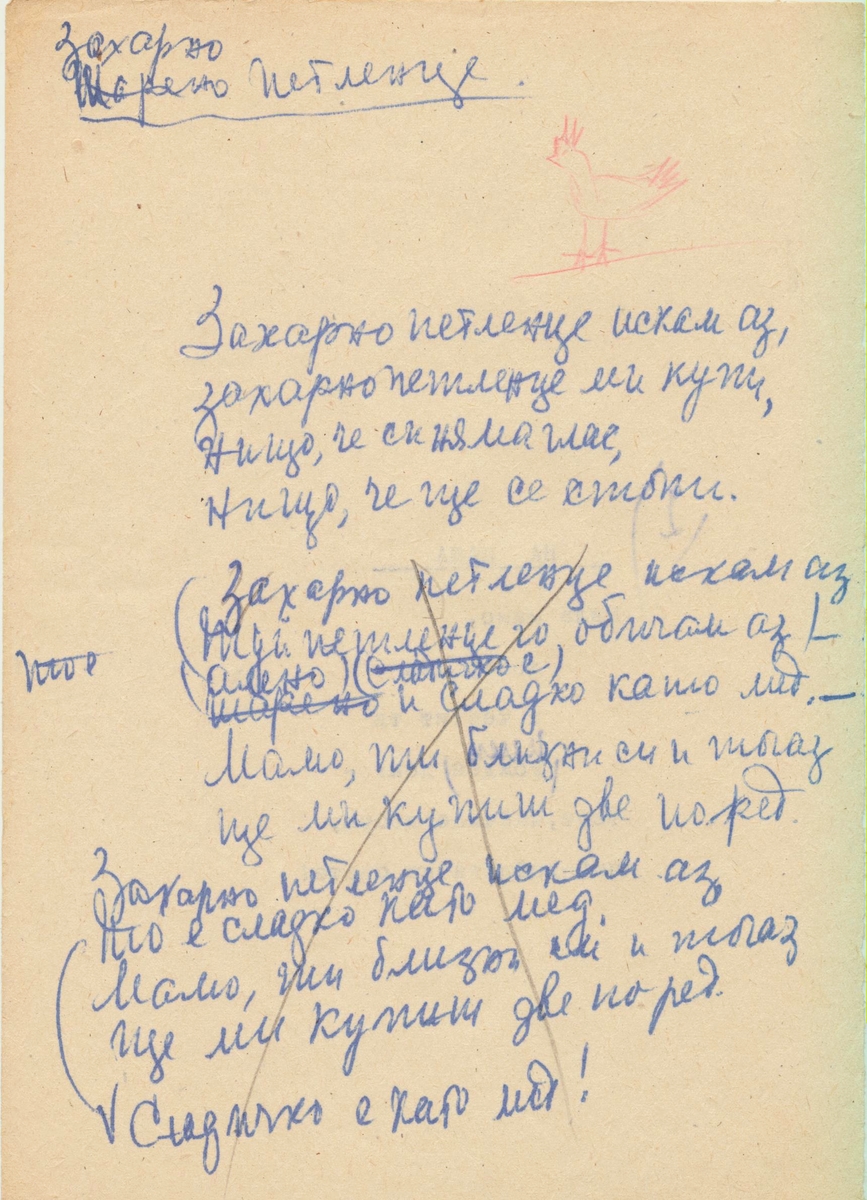 Захарно
Шарено петленце.
Захарно петленце искам аз,
захарно петленце ми купи,
Нищо, че си няма глас,
Нищо, че ще се стопи.
Захарно петленце искам аз
Туй петленце го обичам аз
тое
(алено) (сладичко е)
шарено и сладко като мед.
Мамо, ти близни си и тогаз
ще ми купиш две поред.
Захарно петленце искам аз,
то е сладко като мед.
Мамо, ти близни си и тогаз
ще ми купиш две поред.
Сладичко е като мед!